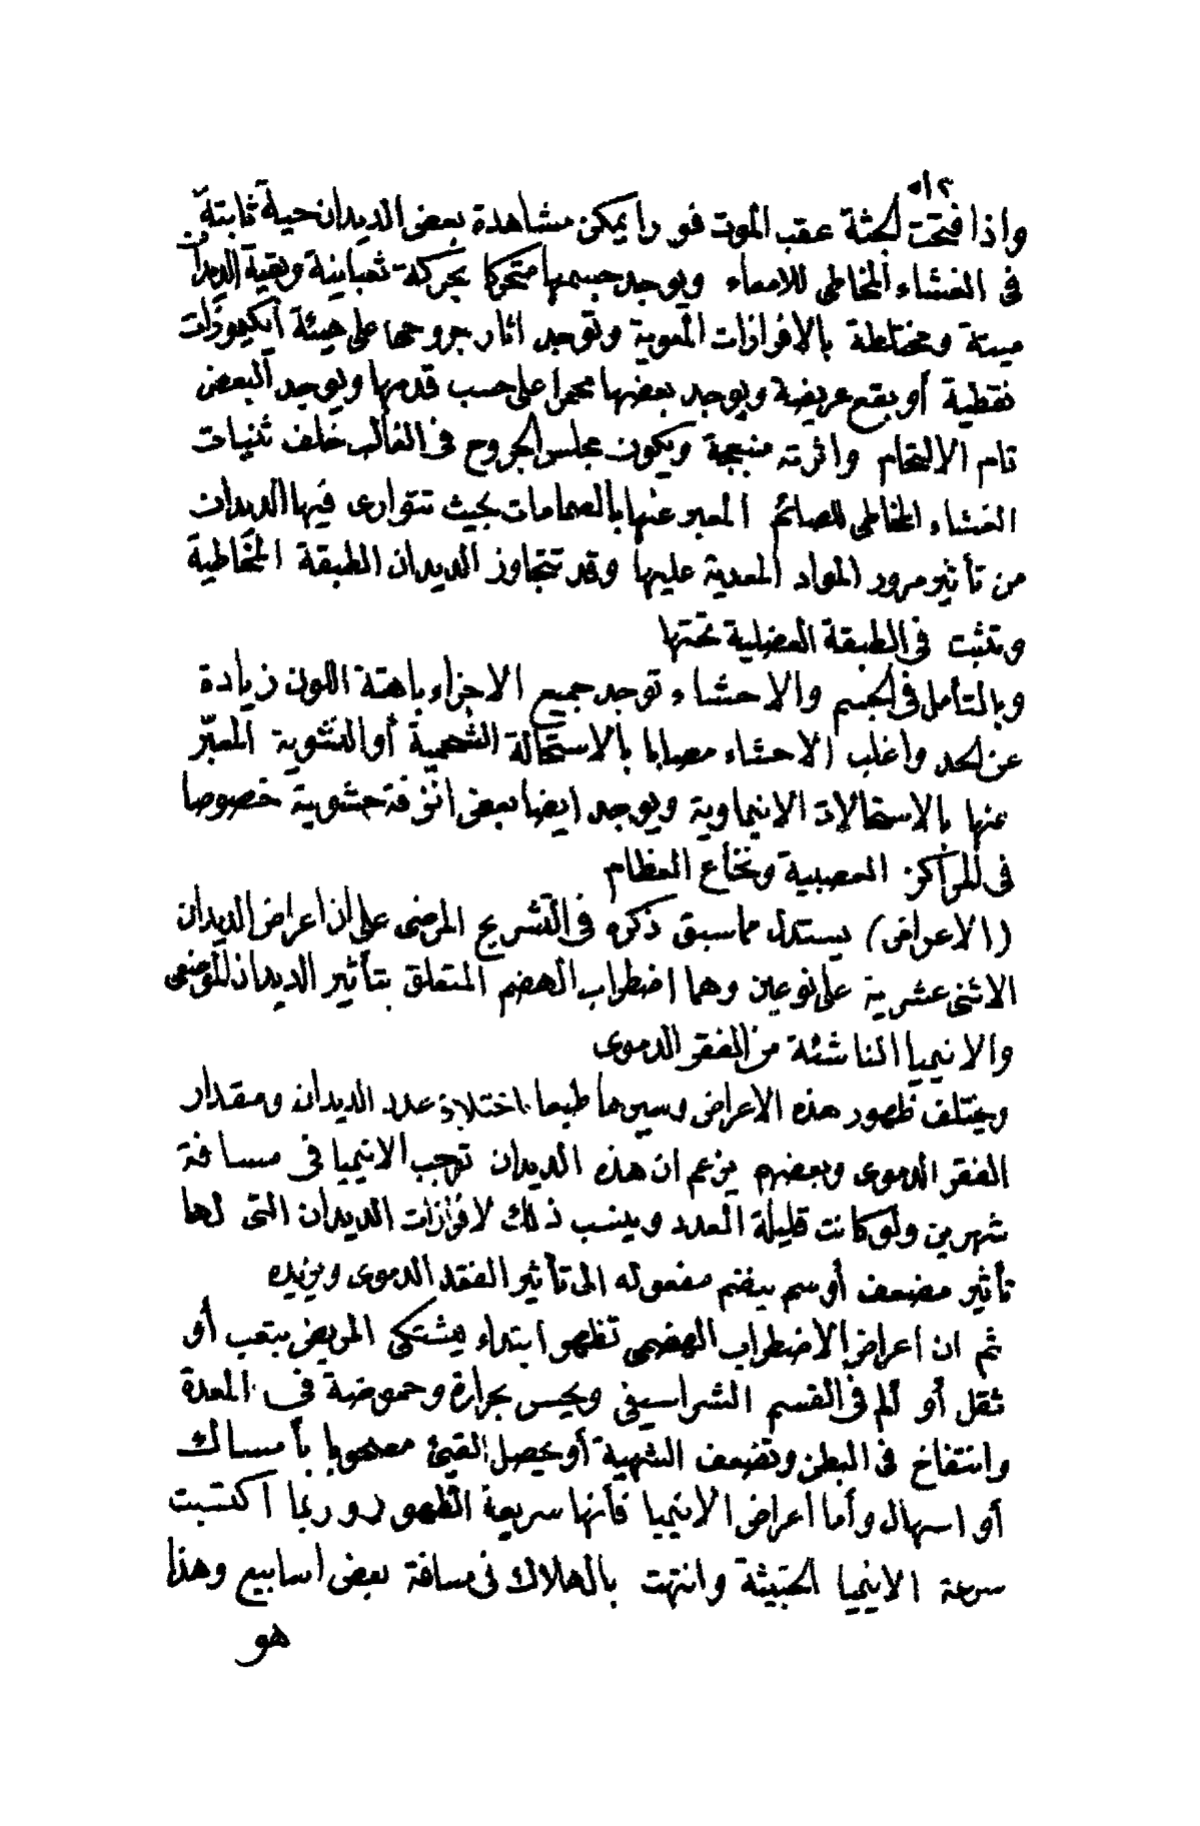 ٥١٢
واذا فتحت الجثة عقب الموت فورا يمكن مشاهدة بعض الديدان حية ثابتة
فى الغشاء المخاطى للامعاء ويوجد جسمها متحركا بحركة ثعبانية وبقية الديدان
ميتة ومختلطة بالافرازات المعوية وتوجد اثار جروحها على هيئة ايكيموزات
نقطية أو بقع عريضة ويوجد بعضها محمرا على حسب قدمها ويوجد البعض
تام الالتحام واثرته منبعجة ويكون مجلس الجروح فى الغالب خلف ثنيات
الغشاء المخاطى للصائم المعبر عنها بالصمامات بحيث تتوارى فيها الديدان
من تأثير مرور المواد المعدية عليها وقد تتجاوز الديدان الطبقة المخاطية
وتثبت فى الطبقة العضلية تحتها
وبالتأمل فى الجسم والاحشاء توجد جميع الاجزاء باهتة اللون زيادة
عن الحد واغلب الاحشاء مصابا بالاستحالة الشحمية أو النشوية المعبّر
عنها بالاستحالات الانيماوية ويوجد ايضا بعض انزفة حشوية خصوصا
فى المراكز العصبية ونخاع العظام
(الاعراض) يستدل مما سبق ذكره فى التشريح المرضى على ان اعراض الديدان
الاثنى عشرية على نوعين وهما اضطراب الهضم المتعلق بتأثير الديدان الموضعى
والانيميا الناشئة من الفقر الدموى
ويختلف ظهور هذه الاعراض وسيرها طبعا باختلاف عدد الديدان ومقدار
الفقر الدموى وبعضهم يزعم ان هذه الديدان توجب الانيميا فى مسافة
شهرين ولو كانت قليلة العدد وينسب ذلك لافرازات الديدان التى لها
تأثير مضعف أو سم ينضم مفعوله الى تأثير الفقد الدموى ويزيده
ثم ان اعراض الاضطراب الهضمى تظهر ابتداء فيشتكى المريض بتعب أو
ثقل أو ألم فى القسم الشراسيفى ويحس بحرارة وحموضة فى المعدة
وانتفاخ فى البطن وتضعف الشهية أو يحصل القيئ مصحوبا بأمساك
أو اسهال وأما اعراض الانيميا فأنها سريعة الظهور وربما اكتسبت
سرعة الانيميا الخبيثة وانتهت بالهلاك فى مسافة بعض اسابيع وهذا
هو